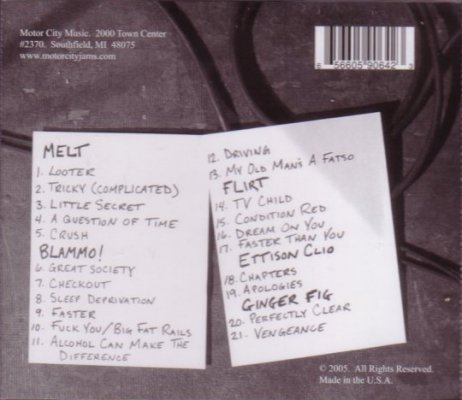 Motor City Music. 2000 Town Center
#2370. Southfield, MI 48075
www.motorcityjams.com
6 56605 90642 3
MELT
1. LOOTER
2. TRICKY (COMPLICATED)
3. LITTLE SECRET
4. A QUESTION OF TIME
5. CRUSH
BLAMMO!
6. GREAT SOCIETY
7. CHECKOUT
8. SLEEP DEPRIVATION
9. FASTER
10. FUCK YOU/BIG FAT RAILS
11. ALCOHOL CAN MAKE THE
DIFFERENCE
12. DRIVING
13. MY OLD MAN'S A FATSO
FLIRT
14. TV CHILD
15. CONDITION RED
16. DREAM ON YOU
17. FASTER THAN YOU
ETTISON CLIO
18. CHAPTERS
19. APOLOGIES
GINGER FIG
20. PERFECTLY CLEAR
21. VENGEANCE
© 2005. All Rights Reserved.
Made in the U.S.A.